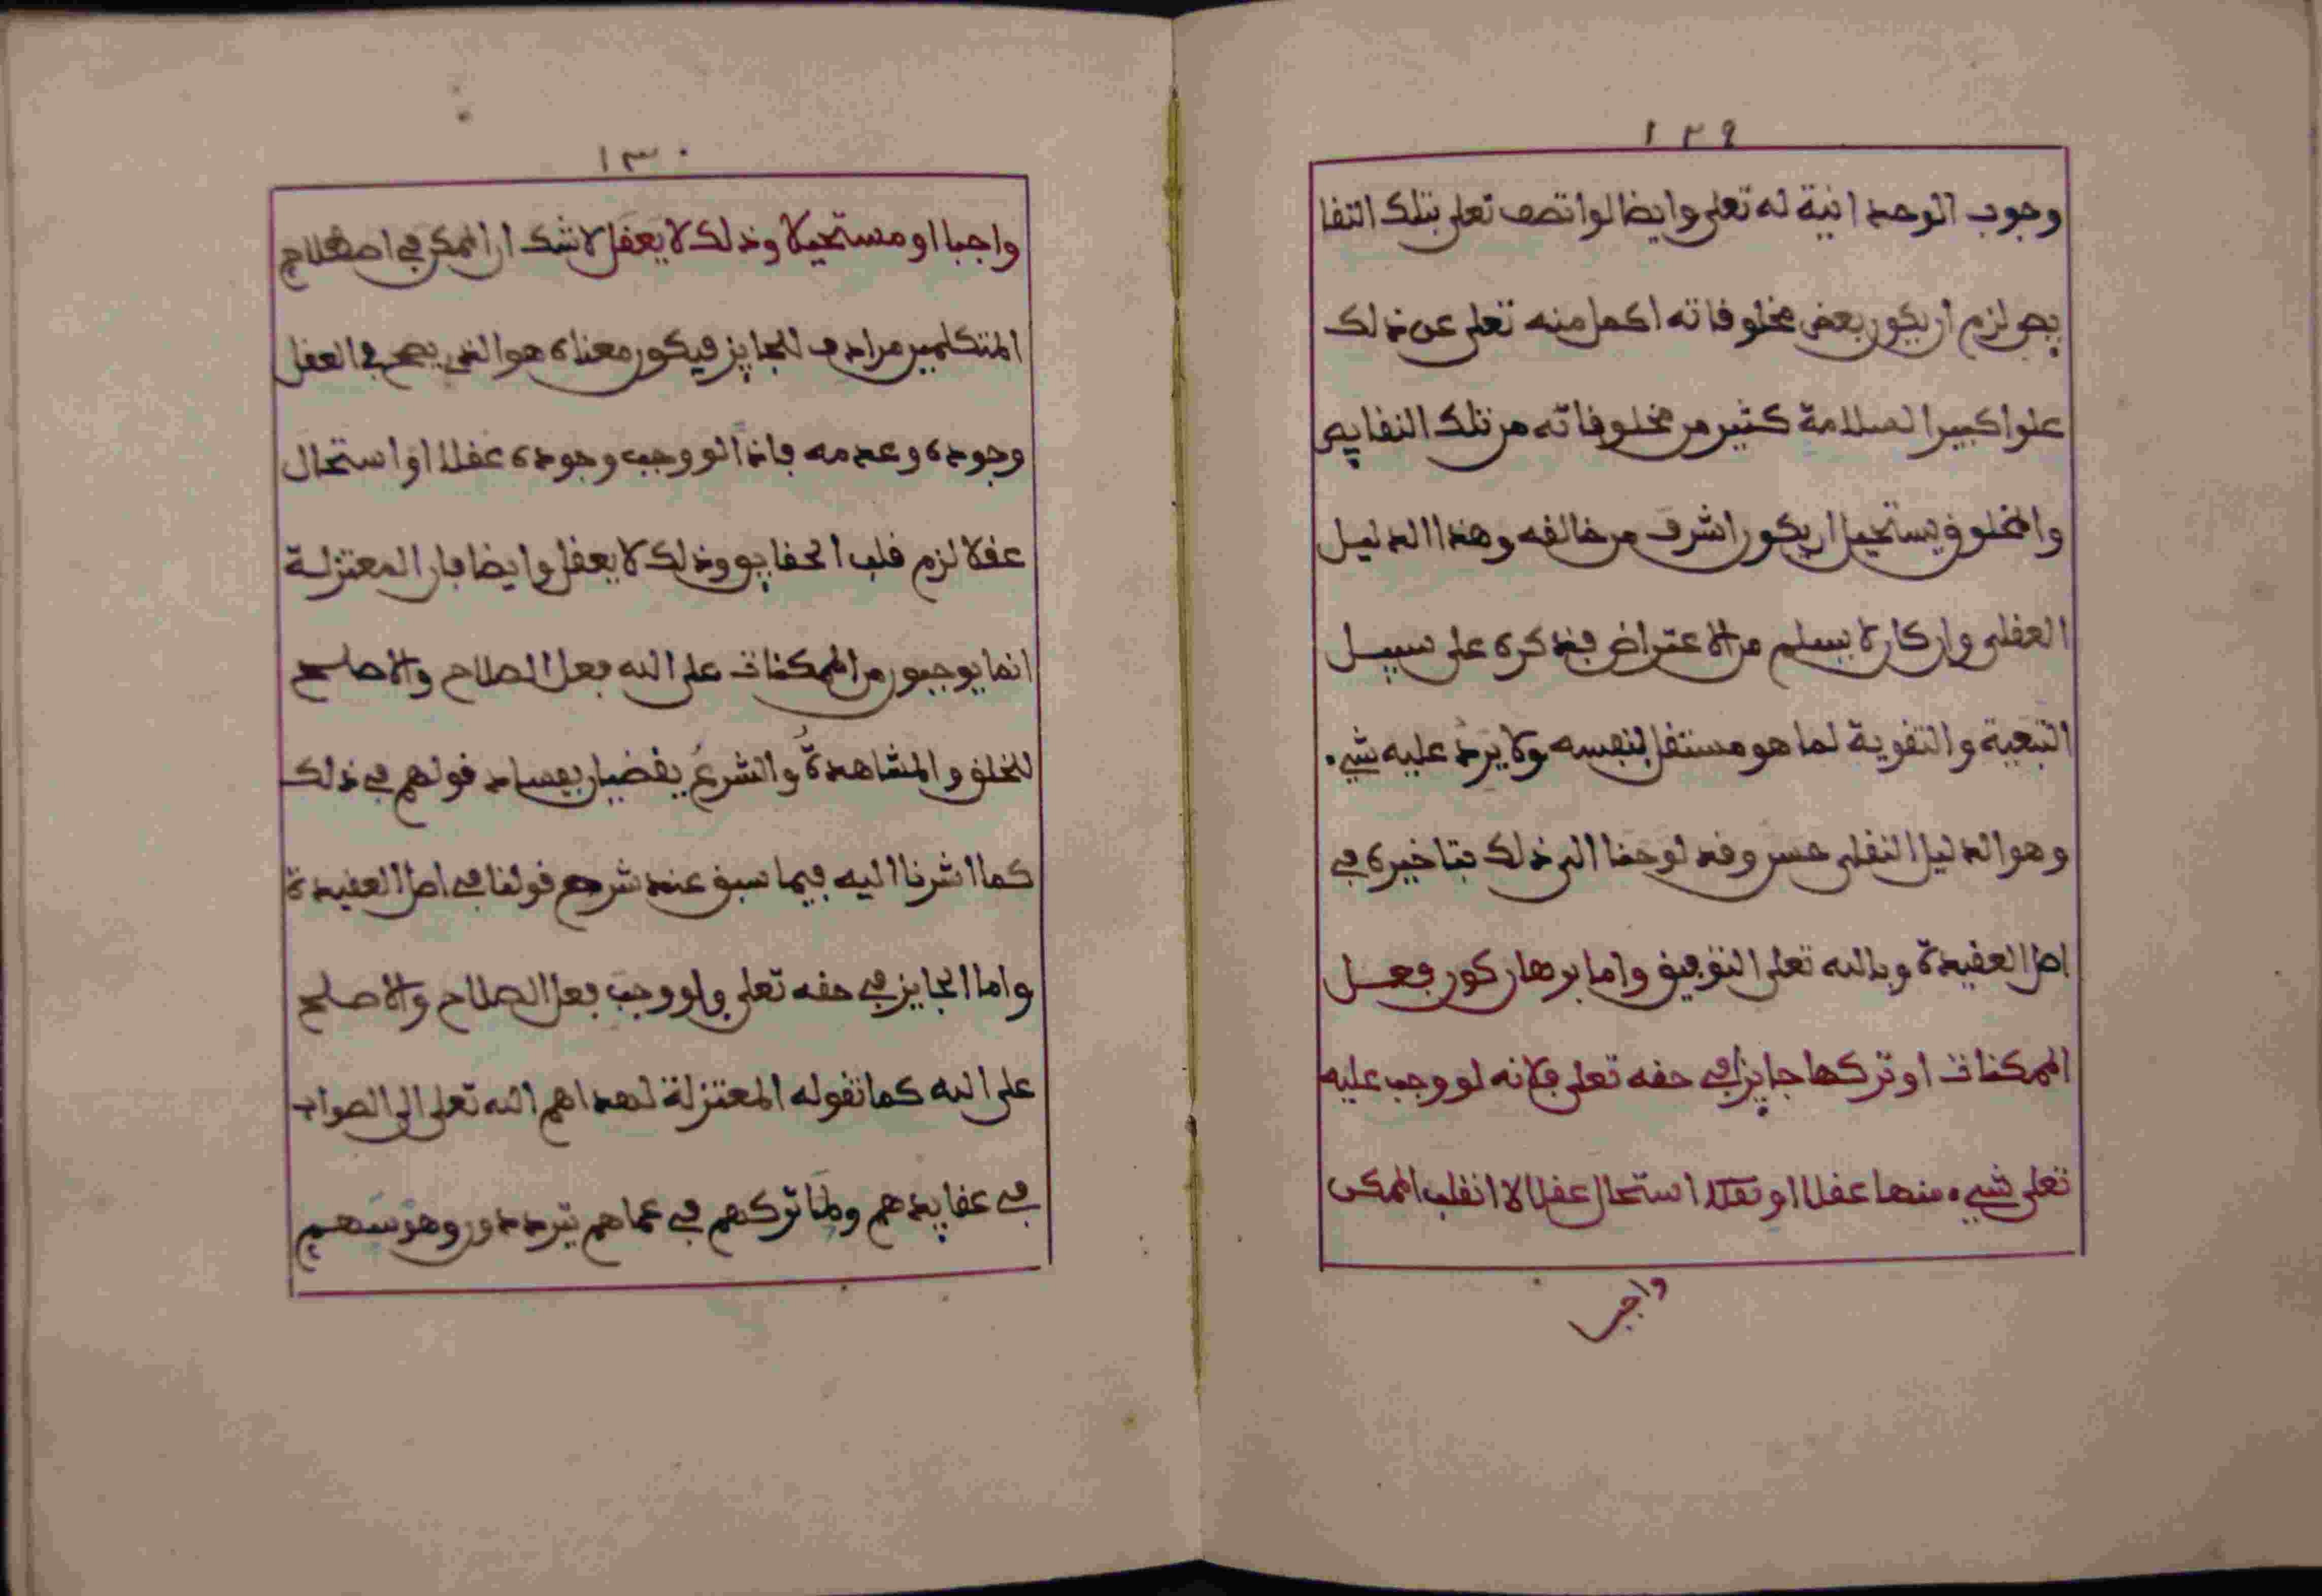 ١٢٩
وجوب الوحدانية له تعلى وايضا لو اتصف تعلى بتلك النقا
يص لزم ان يكون بعض مخلوقاته اكمل منه تعلى عن ذلك
علوا كبيرا لسلامة كثير من مخلوقاته من تلك النقايص
والمخلوق يستحيل ان يكون اشرف من خالقه وهذا الدليل
العقلي وان كان لا يسلم من الاعتراض فذكره على سبيل
التبعية والتقوية لما هو مستقل بنفسه ولا يرد عليه شيء
وهو الدليل النقلي حسن وقد لوحنا الى ذلك بتاخيره في
اصل العقيدة وبالله تعلى التوفيق واما برهان كون فعل
الممكنات او تركها جايزا في حقه تعلى فلانه لو وجب عليه
تعلى شيء منها عقلا او استحال عقلا لانقلب الممكن
واجبا
١٣٠
واجبا او مستحيلا وذلك لا يعقل لا شك ان الممكن في اصطلاح
المتكلمين مرادف للجايز فيكون معناه هو الذي يصح في العقل
وجوده وعدمه فاذا لو وجب وجوده عقلا او استحال
عقلا لزم قلب الحقايق وذلك لا يعقل وايضا فان المعتزلة
انما يوجبون من الممكنات على الله فعل الصلاح والاصلح
للخلق والمشاهدةُ والشرعُ يقضيان بفساد قولهم في ذلك
كما اشرنا اليه فيما سبق عند شرح قولنا في اصل العقيدة
واما الجايز في حقه تعلى ولو وجب فعل الصلاح والاصلح
على الله كما تقوله المعتزلة لهداهم الله تعلى الى الصواب
في عقايدهم ولما تركهم في عماهم يترددون وهوسهم